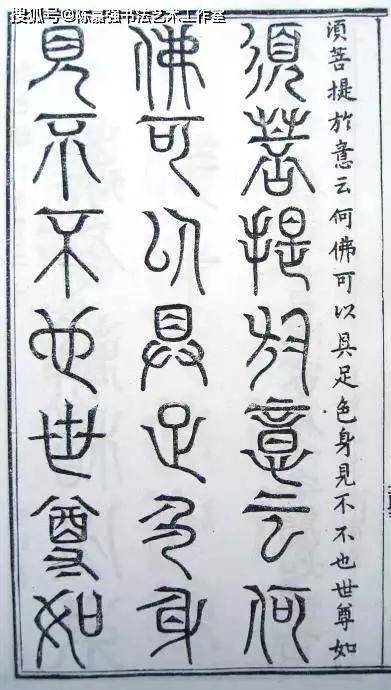 搜狐号@陈嘉强书法艺术工作室
須菩提於意云何佛可以具足色身見不不也世尊如
須菩提於意云何
佛可以具足色身
見不不也世尊如